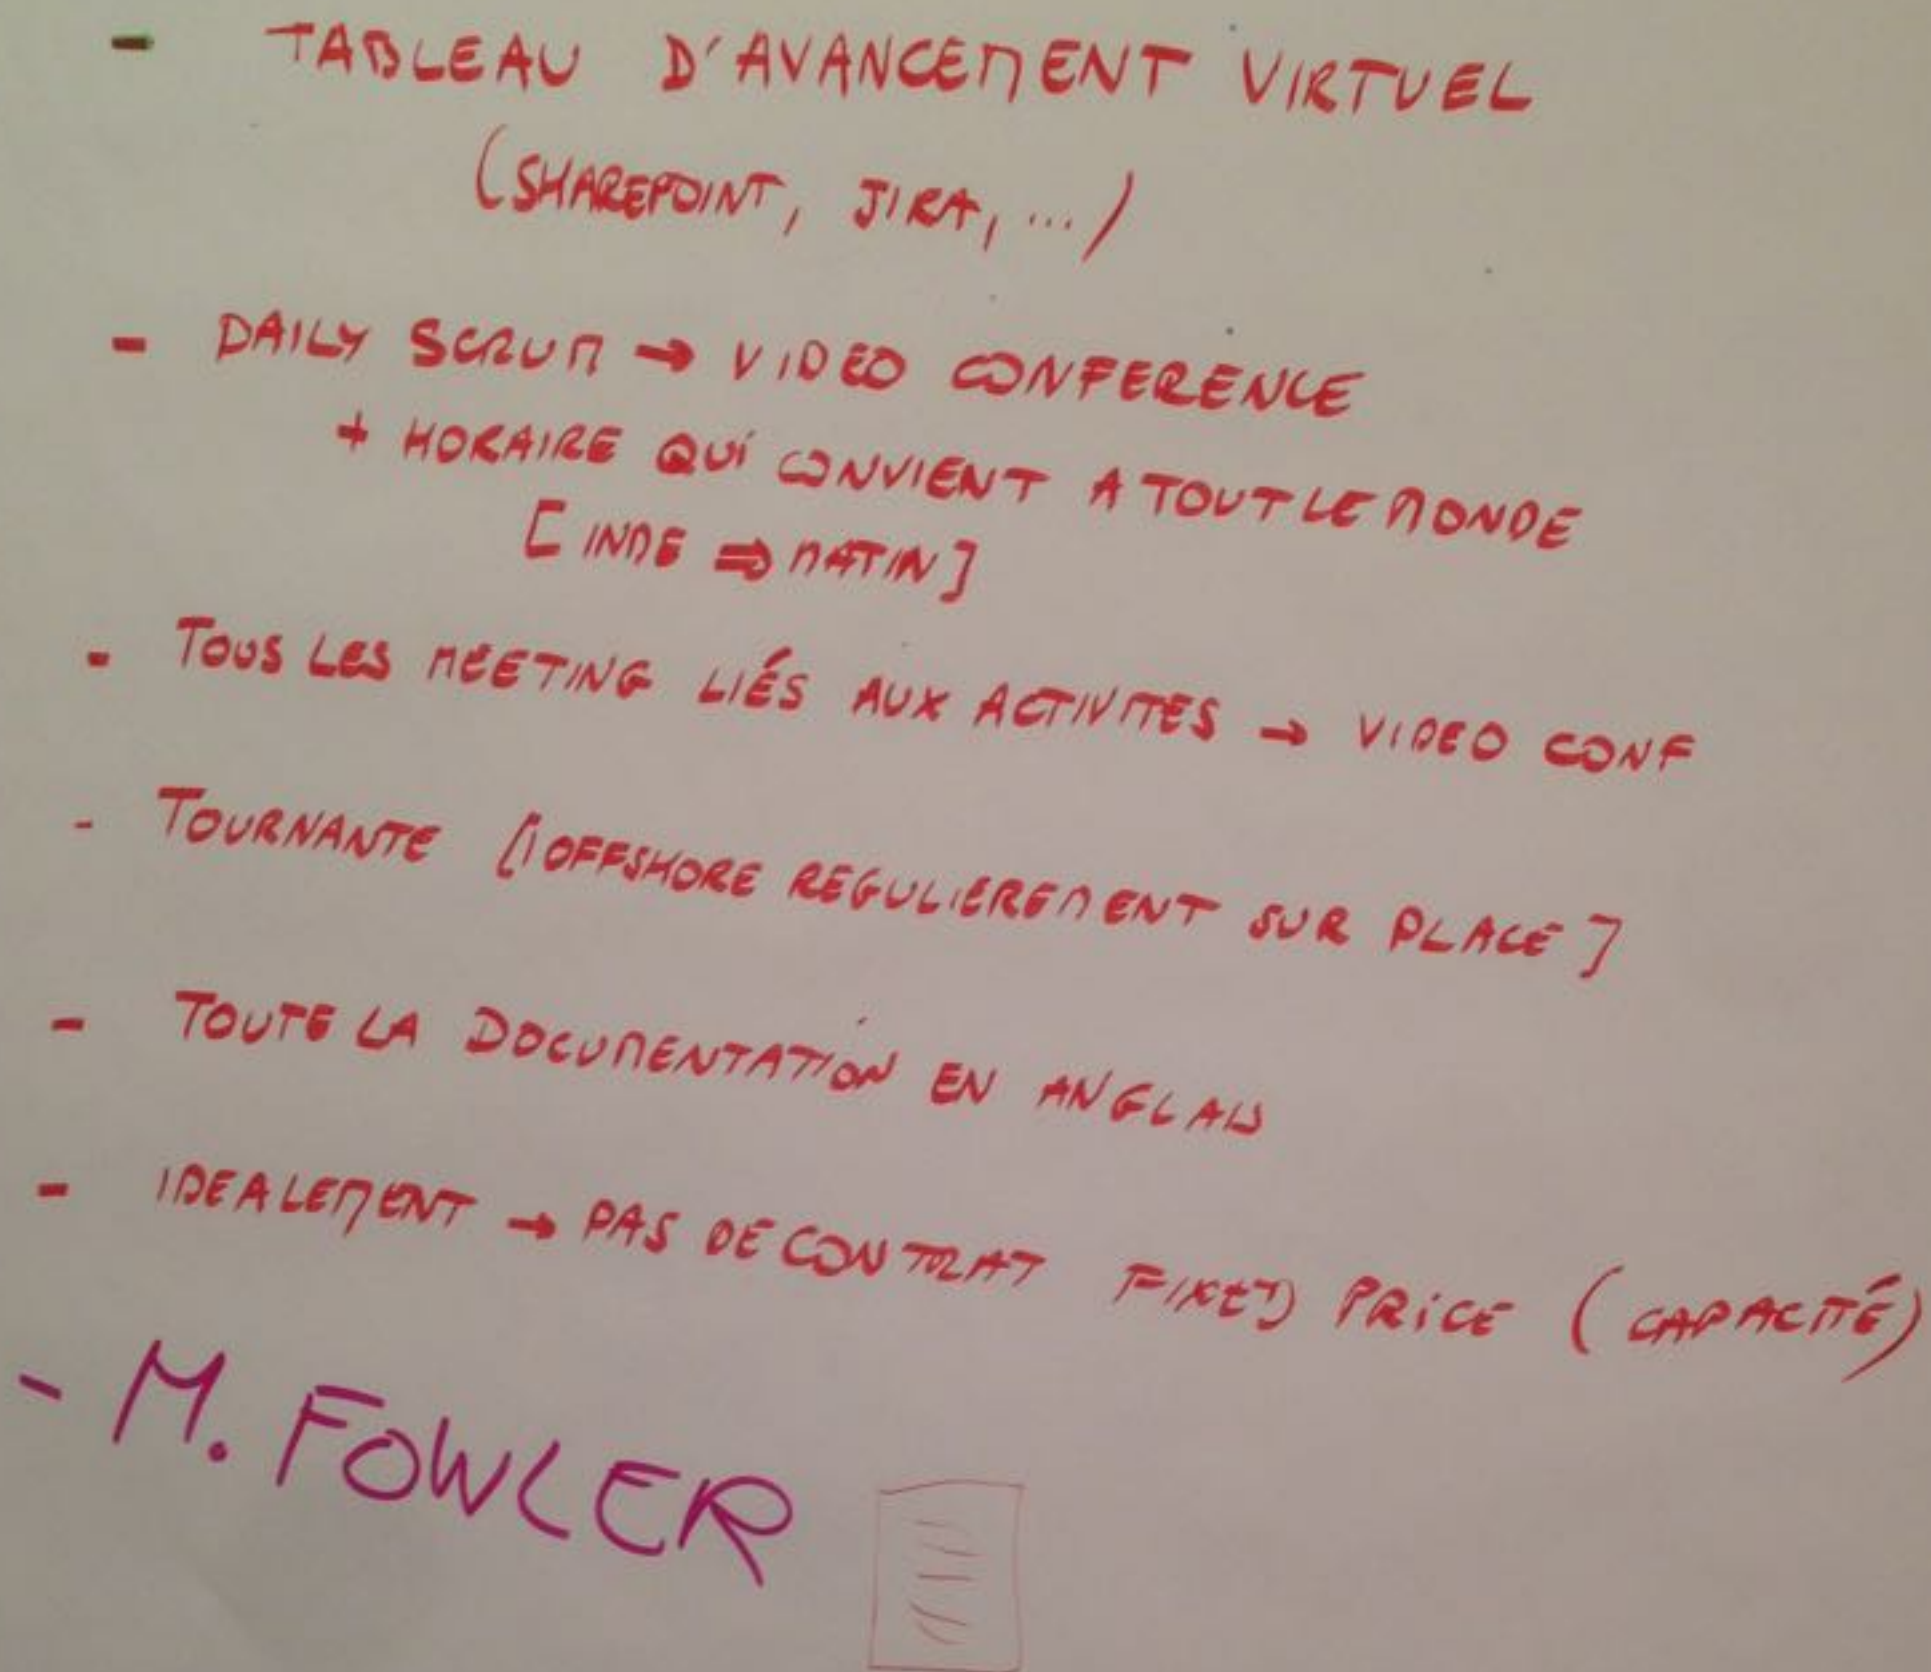 - TABLEAU D'AVANCEMENT VIRTUEL
(SHAREPOINT, JIRA, ...)
- DAILY SCRUM → VIDEO CONFERENCE
+ HORAIRE QUI CONVIENT A TOUT LE MONDE
[INDE ⇒ MATIN]
- TOUS LES MEETING LIÉS AUX ACTIVITES → VIDEO CONF
- TOURNANTE [1 OFFSHORE REGULIEREMENT SUR PLACE]
- TOUTE LA DOCUMENTATION EN ANGLAIS
- IDEALEMENT → PAS DE CONTRAT FIXED PRICE (CAPACITÉ)
- M. FOWLER